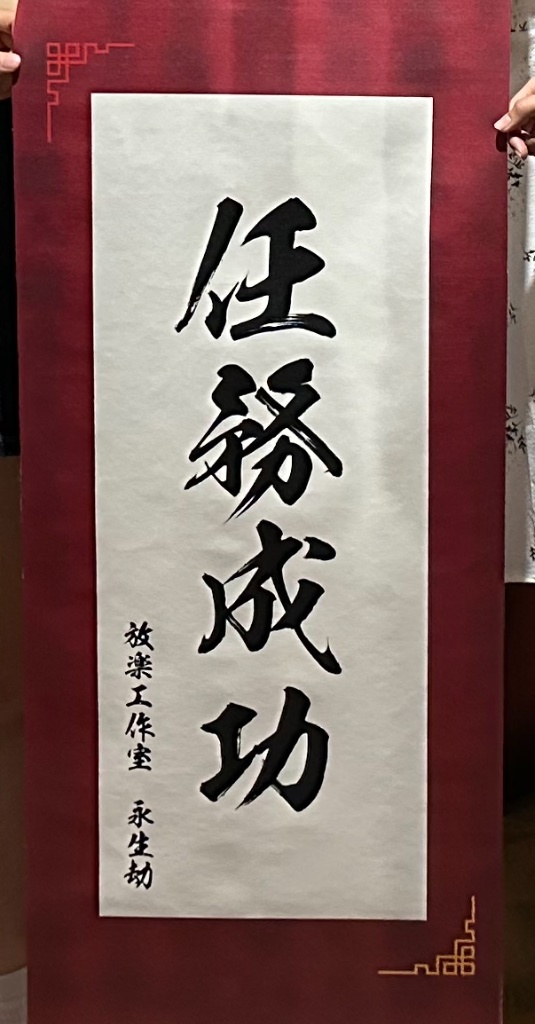 任務成功
放楽工作室 永生劫